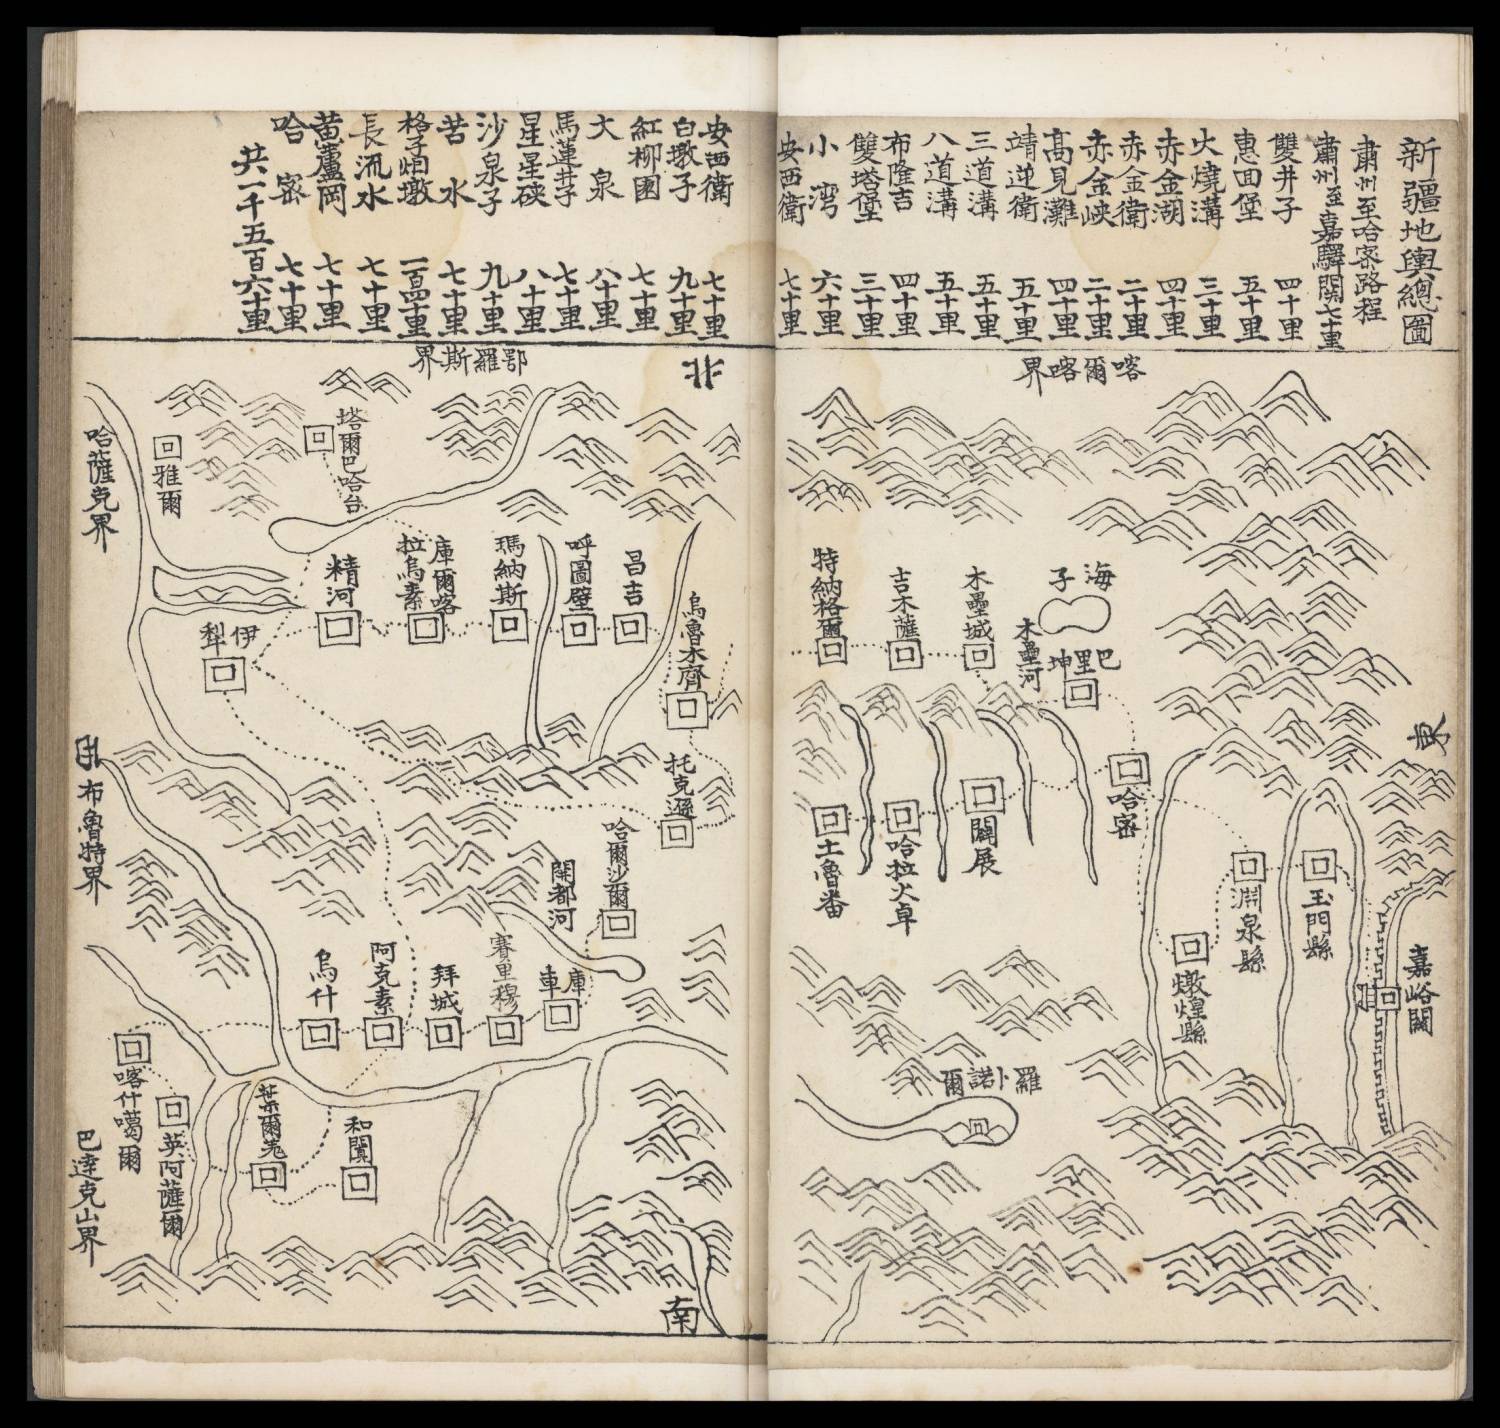 新疆地輿總圖
肅州至哈密路程
肅州至嘉驛関七十里
雙井子 四十里
惠回堡 五十里
火燒溝 三十里
赤金湖 四十里
赤金衛 二十里
赤金峡 二十里
高見灘 四十里
靖逆衛 五十里
三道溝 五十里
八道溝 五十里
布隆吉 四十里
雙塔堡 三十里
小湾 六十里
安西衛 七十里
安西衛 七十里
白墩子 九十里
紅柳園 七十里
大泉 八十里
馬蓮井子 七十里
星星硤 八十里
沙泉子 九十里
苦水 七十里
格子烟墩 一百四十里
長流水 七十里
黄蘆岡 七十里
哈密 七十里
共一千五百六十里
喀爾喀界
東
海子
巴里坤
木壘河
木壘城
吉木薩
特納格爾
哈密
闢展
哈拉火卓
土魯番
嘉峪關
玉門縣
淵泉縣
燉煌縣
羅卜諾爾
北
鄂羅斯界
塔爾巴哈台
雅爾
哈薩克界
烏魯木齊
昌吉
呼圖壁
瑪納斯
庫爾喀拉烏素
精河
伊犁
托克遜
哈爾沙爾
開都河
庫車
賽里穆
拜城
阿克素
烏什
布魯特界
喀什噶爾
英阿薩爾
葉爾羌
和闐
巴達克山界
南